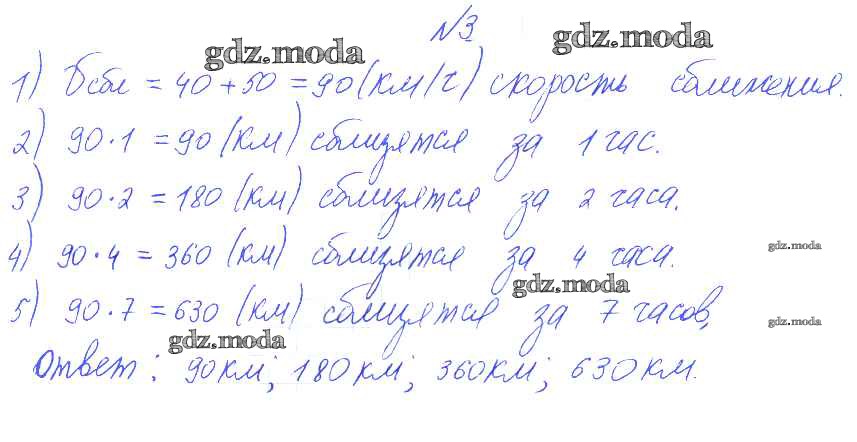 №3
gdz.moda gdz.moda
1) υсбл = 40 + 50 = 90 (км/ч) скорость сближения.
2) 90·1 = 90 (км) сблизятся за 1 час.
3) 90·2 = 180 (км) сблизятся за 2 часа.
gdz.moda
4) 90·4 = 360 (км) сблизятся за 4 часа.
gdz.moda
5) 90·7 = 630 (км) сблизятся за 7 часов,
gdz.moda
gdz.moda
Ответ: 90км; 180км; 360км; 630км.